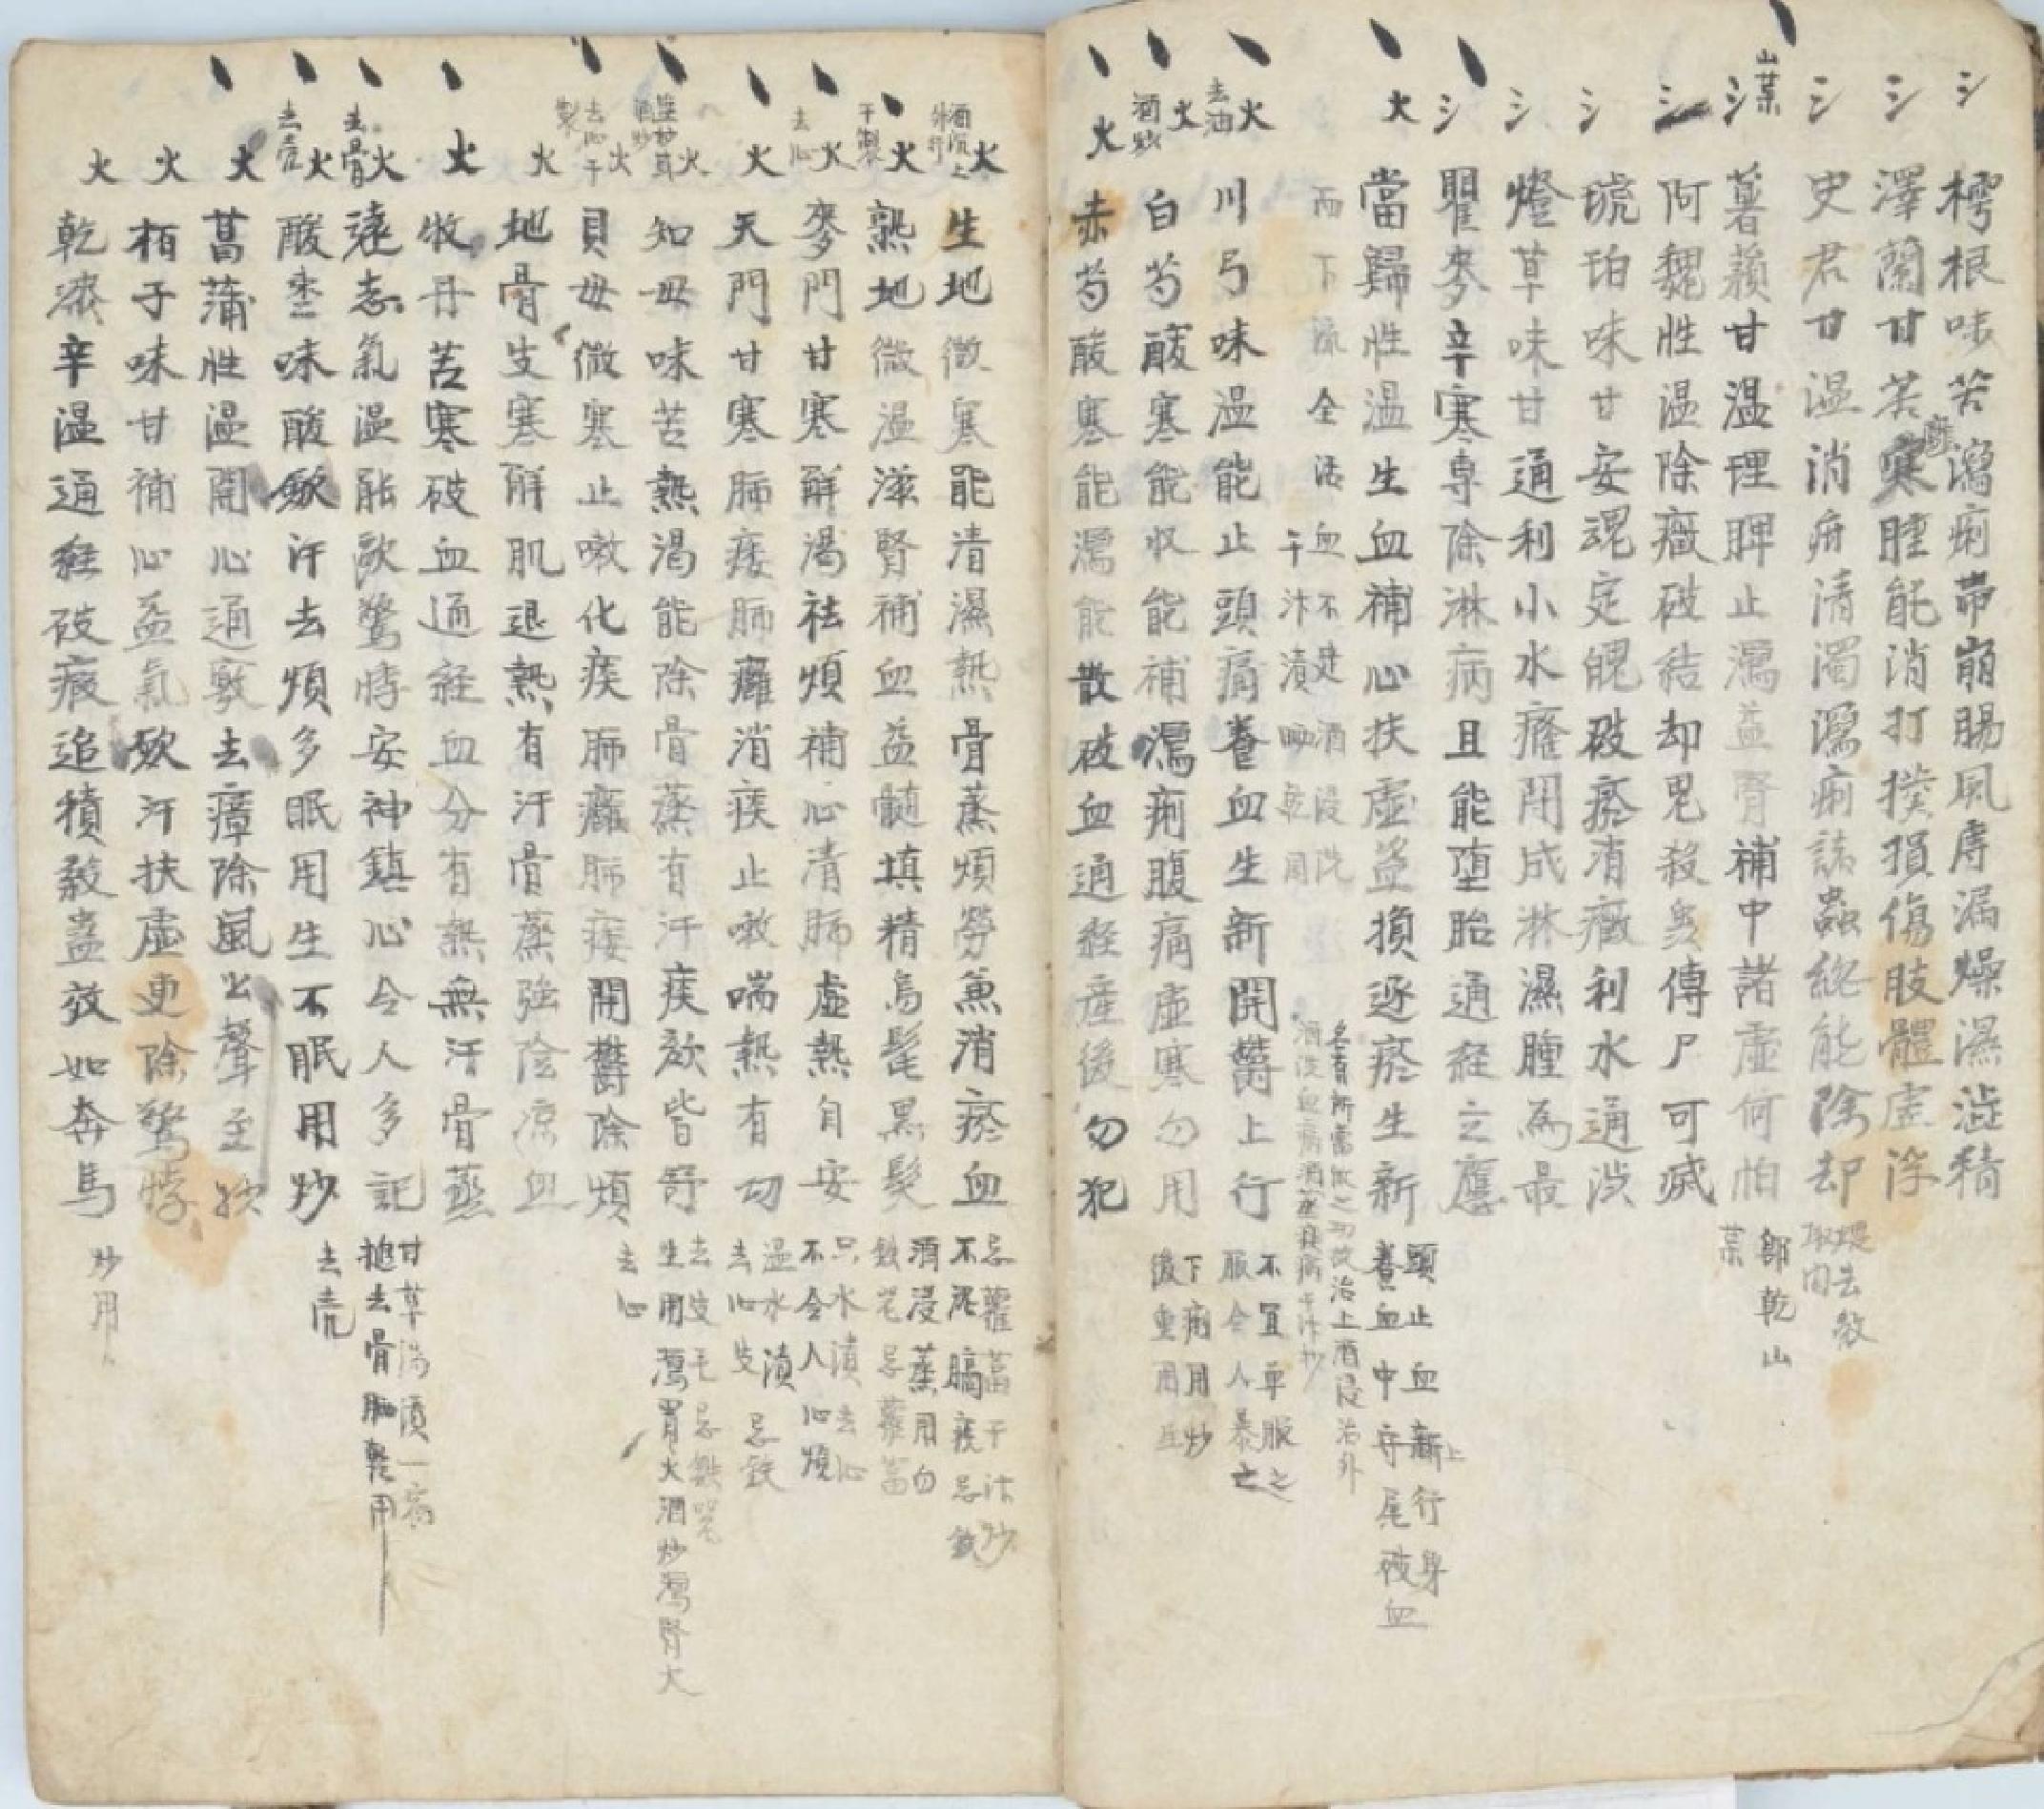 氵
樗根味苦瀉痢帶崩腸風痔漏燥濕澁精
氵
澤蘭甘苦癰腫能消打撲損傷肢體虛浮
氵
史君甘溫消疳清濁瀉痢諸蟲總能除却
氵
山藥
薯蕷甘溫理脾止瀉益腎補中諸虛何怕
郞乾山藥
阿魏性溫除癥破結却鬼殺蟲傳尸可滅
氵
琥珀味甘安魂定魄破瘀消癥利水通淋
氵
燈草味甘通利小水癃閉成淋濕腫爲最
氵
瞿麥辛寒專除淋病且能墮胎通經立應
火
當歸性溫生血補心扶虛益損逐瘀生新
頭止血新上行身
養血中守尾破血
而下流全活血不走酒浸洗
火
去油
川弓味溫能止頭痛養血生新開鬱上行
不宜單服之
服令人暴亡
火
酒炒
白芍酸寒能收能補瀉痢腹痛虛寒勿用
下痢用炒
後重用生
火
赤芍酸寒能瀉能散破血通經産後勿犯
火
生地微寒能清濕熱骨蒸煩勞兼消瘀血
忌蘿葍干汁炒
不泥膈痰忌鉄
火
干製
熟地微溫滋腎補血益髓填精烏髭黑髮
酒浸蒸用勿
鉄忌蘿葍
火
去心
麥門甘寒解渴祛煩補心淸肺虛熱自安
只水漬去心
不令人心煩
火
天門甘寒肺痿肺癰消痰止嗽喘熱有功
溫水漬
去心皮忌鉄
火
知母味苦熱渴能除骨蒸有汗痰欬皆舒
去皮毛忌鉄
生用瀉胃火酒炒瀉腎火
火
去心干製
貝母微寒止嗽化痰肺癰肺痿開鬱除煩
去心
火
地骨皮寒解肌退熱有汗骨蒸强陰凉血
火
牧丹苦寒破血通經血分有熱無汗骨蒸
火
去骨
遠志氣溫能歐驚悸安神鎭心令人多記
甘草湯漬一宿
搥去骨晒乾用
火
去売
酸棗味酸斂汗去煩多眠用生不眠用炒
去売
火
菖蒲性溫開心通竅去瘴除風出聲至妙
火
栢子味甘補心益氣斂汗扶虛更除驚悸
火
乾漆辛溫通經破癥追積殺蠱效如奔馬
炒用